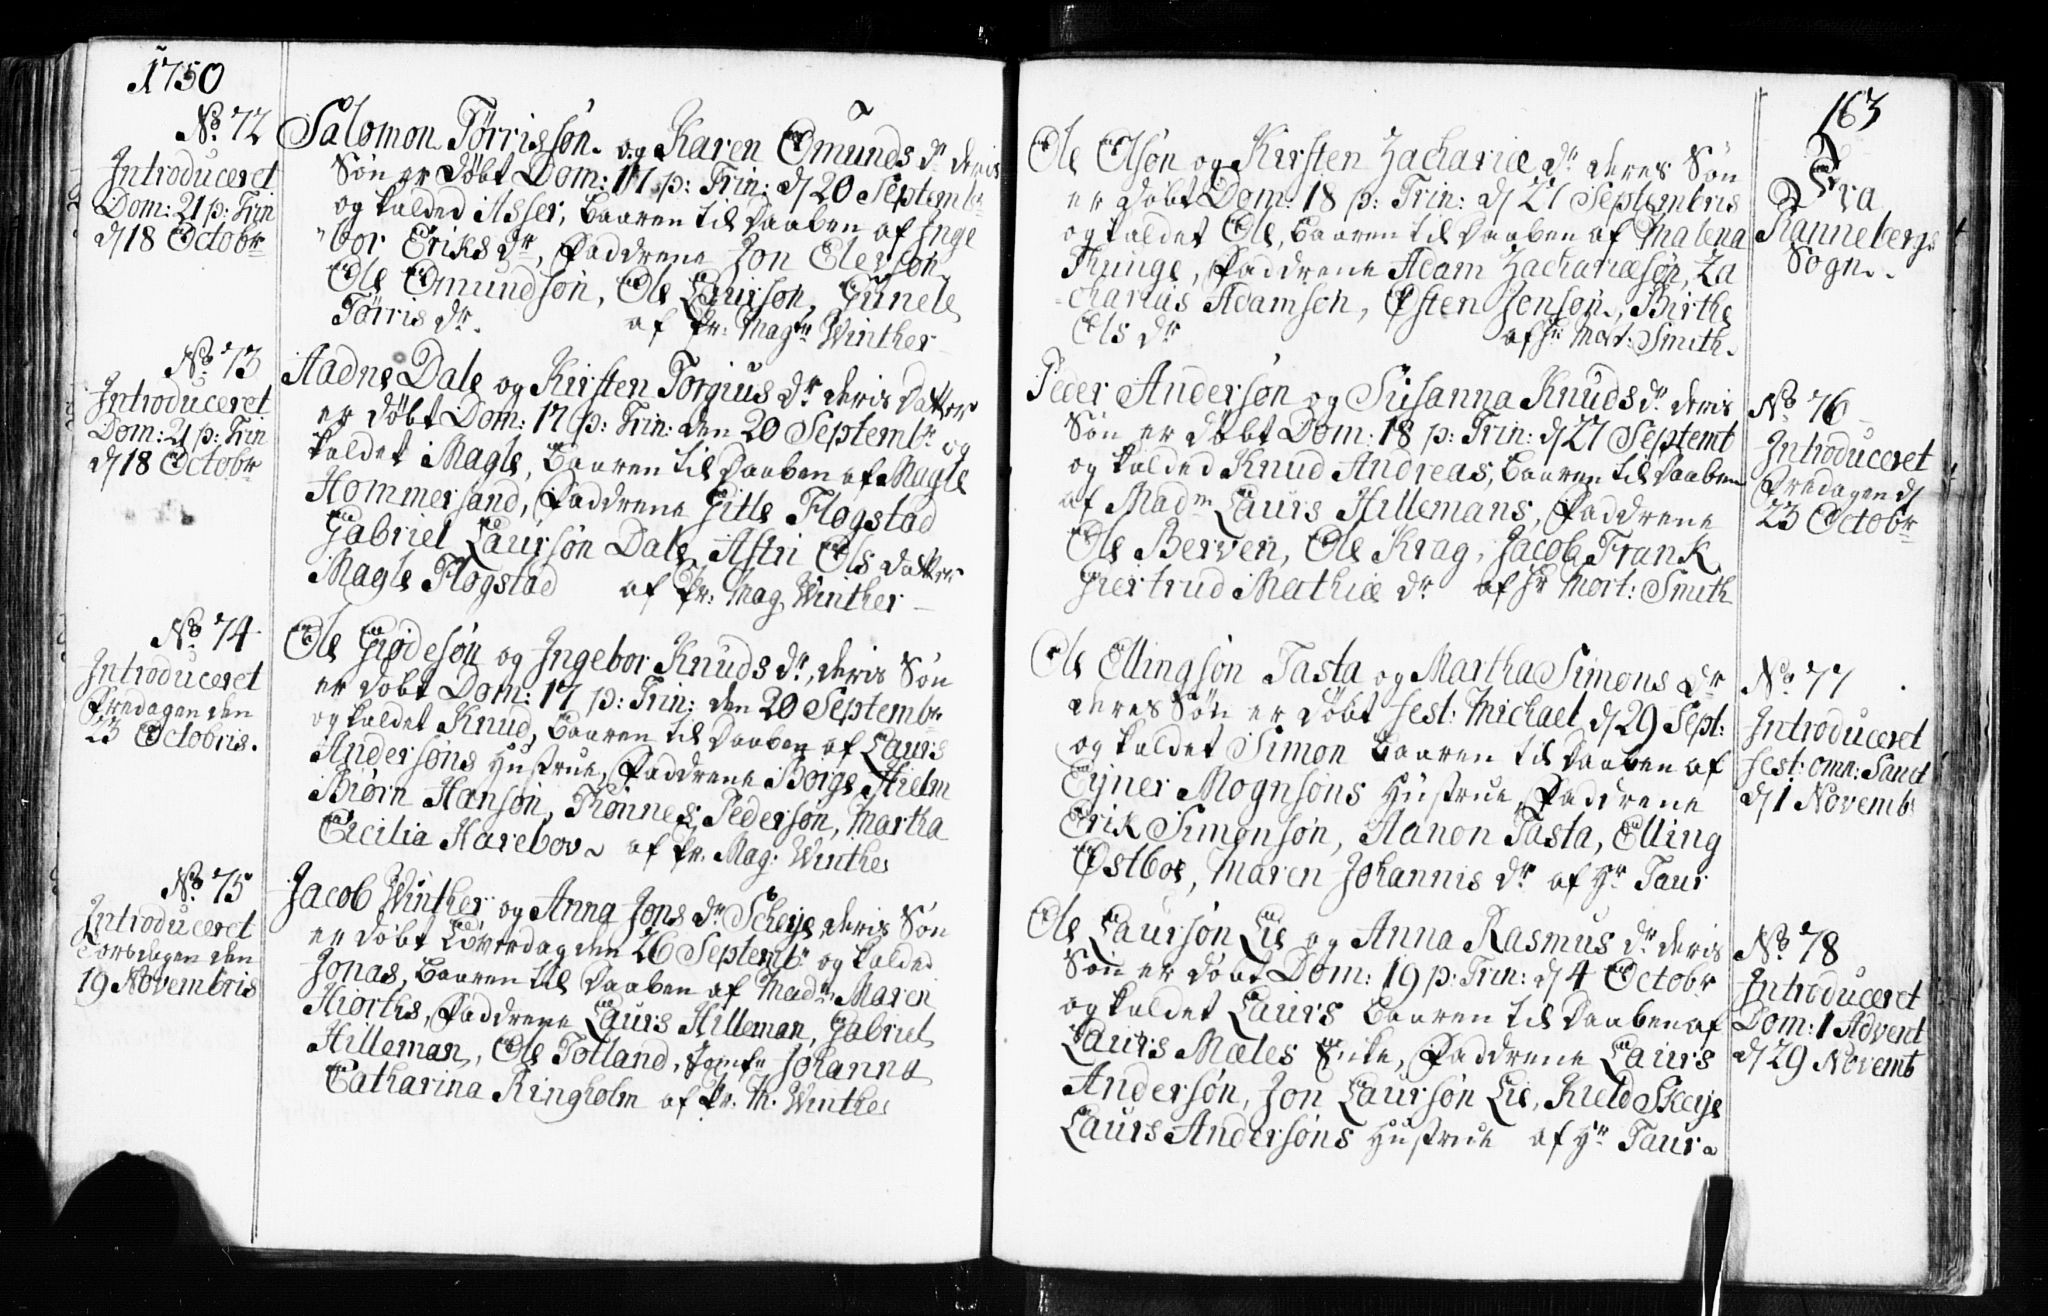 1750
No. 72
Introduceret
Dom: 21 p: Trin
d/ 18 Octobr
Salomon Tørrissøn og Karen Omunds dr deris
Søn er døbt Dom: 17 p: Trin: d/ 20 Septembr
og kalded Asser, baaren til Daaben af Inge
"bor Eriks dr, Faddrene Jon Elersøn
Ole Omundsøn, Ole Laursøn, Gunele
Tørris dr. af Pr: Magtr Winther
No. 73
Introduceret
Dom: 21 p: Trin
d/ 18 Octobr
Aadne Dale og Kirsten Torgius dr deris Datter
er døbt Dom: 17 p: Trin: den 20 Septembr og
kaldet Magle, baaren til Daaben af Magle
Hommersand, Faddrene Gitle Flogstad
Gabriel Laursøn Dale, Astri Ols Datter
Magle Flogstad af Pr: Mag Winther
No. 74
Introduceret
Fredagen den
23 Octobris.
Ole Giødesøn og Ingebor Knuds dr, deris Søn
er døbt Dom: 17 p: Trin: den 20 Septembr
og kaldet Knud, baaren til Daaben af Laurs
Andersøns Hustrue, Faddrene Børge Hielm
Biørn Hansøn, Tønnes Pedersøn, Martha
Cicilia Harebov af Pr. Mag: Winther
No. 75
Introduceret
Torsdagen den
19 Novembris
Jacob Winther og Anna Jons dr Scheye deris Søn
er døbt Løverdag den 26 Septembr og kalded
Jonas, baaren til Daaben af Madm Maren
Hiorths, Faddrene Laurs Hilleman, Gabriel
Hilleman, Ole Totland, Jomfr Johanna
Catharina Ringholm af Pr. Th. Winther
163
Fra
Ranneberg
Sogn.
Ole Olsøn og Kirsten Zachariæ dr deres Søn
er døbt Dom: 18 p: Trin: d/ 27 Septembris
og kaldet Ole, baaren til Daaben af Malena
Runge, Faddrene Adam Zachariæsøn, Za
charius Adamsøn, Østen Jonsøn, Birthe
Ols dr af Hr Mort: Smith.
No. 76
Introduceret
Fredagen d/
23 Octobr
Peder Andersøn og Susanna Knuds dr deris
Søn er døbt Dom: 18 p: Trin: d/ 27 Septemb
og kalded Knud Andreas, baaren til Daaben
af Madm Laurs Hillemans, Faddrene
Ole Berven, Ole Krag, Jacob Frank
Giertrud Mathiæ dr af Hr Mort: Smith
No. 77
Introduceret
fest: omn: Sanct
d/ 1 Novemb
Ole Ellingsøn Tasta og Martha Simons dr
deres Søn er døbt fest: Michael d/ 29 Sept:
og kaldet Simon baaren til Daaben af
Ejner Mognsøns Hustrue, Faddrene
Erik Simonsøn, Aanon Tasta, Elling
Østboe, Maren Johannis dr af Hr Taur
No. 78
Introduceret
Dom: 1 Advent
d/ 29 Novemb
Ole Laursøn Lie og Anna Rasmus dr deris
Søn er døbt Dom: 19 p: Trin: d/ 4 Octobr
og kaldet Laurs baaren til Daaben af
Laurs Mæles Enke, Faddrene Laurs
Andersøn, Jon Laursøn Lie, Kield Skeye
Laurs Andersøns Hustrue af Hr Taur